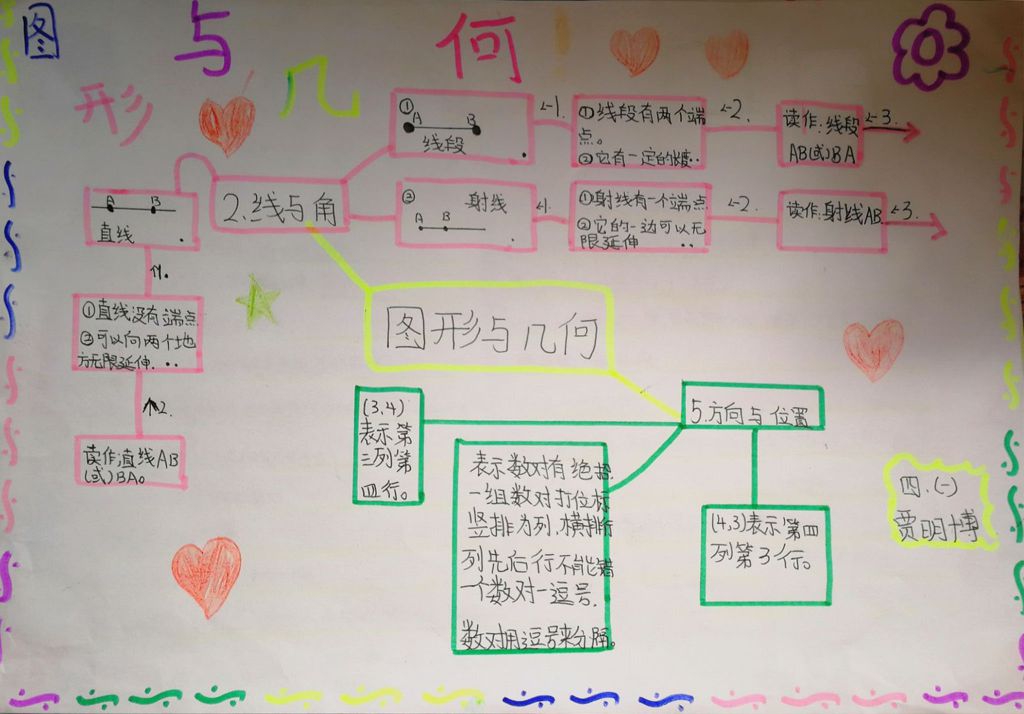 图形与几何
①
A B
线段
←1.
①线段有两个端
点。
②它有一定的长度..
←2.
读作:线段
AB(或)BA
←3.
2.线与角
②
射线
A B
←1.
①射线有一个端点
②它的一边可以无
限延伸 ..
←2.
读作:射线AB
←3.
A B
直线 .
↑1.
①直线没有端点
②可以向两个地
方无限延伸...
↑2.
读作:直线AB
(或)BA。
图形与几何
5.方向与位置
(3.4)
表示第
三列第
四行。
表示数对有绝招
一组数对打位标
竖排为列.横排行
列先后行不能错
一个数对一逗号.
数对用逗号来分隔。
(4,3)表示第四
列第3行。
四.(一)
贾明博